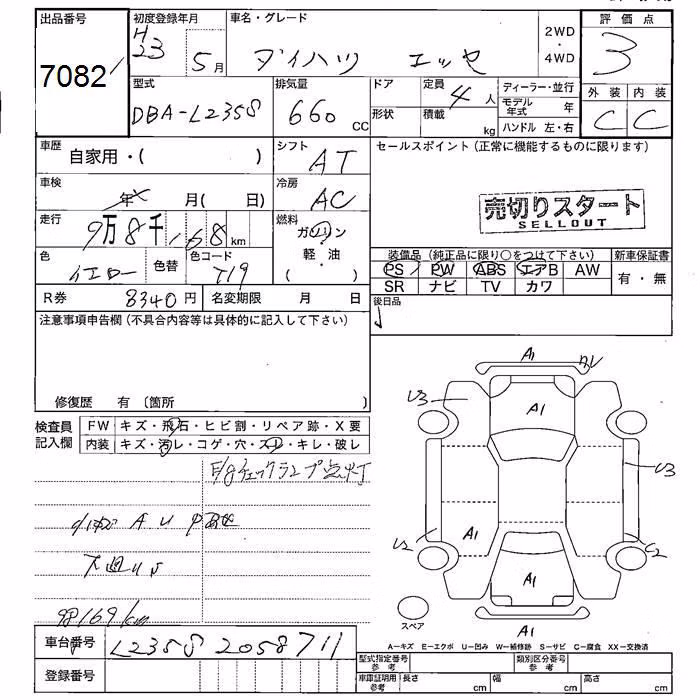 出品番号
7082
初度登録年月
H23 5月
車名・グレード
ダイハツ エッセ
2WD・4WD
評価点
3
型式
DBA-L235S
排気量
660 CC
ドア
形状
定員
4人
積載
kg
ディーラー・並行
モデル年式 年
ハンドル 左・右
外装 内装
C C
車歴
自家用・( )
シフト
AT
セールスポイント(正常に機能するものに限ります)
車検
年 月( 日)
冷房
AC
売切りスタート
SELLOUT
走行
9万8千168km
燃料
ガソリン
軽・油
( )
色
イエロー
色替
色コード
T19
装備品(純正品に限り○をつけて下さい)
新車保証書
PS PW ABS エアB AW
SR ナビ TV カワ
有・無
R券
8340円
名変期限 月 日
後日品
注意事項申告欄(不具合内容等は具体的に記入して下さい)
修復歴 有〔箇所 〕
検査員
記入欄
FW キズ・飛石・ヒビ割・リペア跡・X要
内装 キズ・汚レ・コゲ・穴・スレ・キレ・破レ
E/gチェックランプ点灯
小キズ AU
下廻りS
98169km
A1
U3
A1
U3
U2
A1
C2
A1
スペア
A1
A=キズ E=エクボ U=凹み W=補修跡 S=サビ C=腐食 XX=交換済
車台番号
L235S 2058711
登録番号
型式指定番号
参考
類別区分番号
参考
車庫証明用
参考
長さ cm
幅 cm
高さ cm